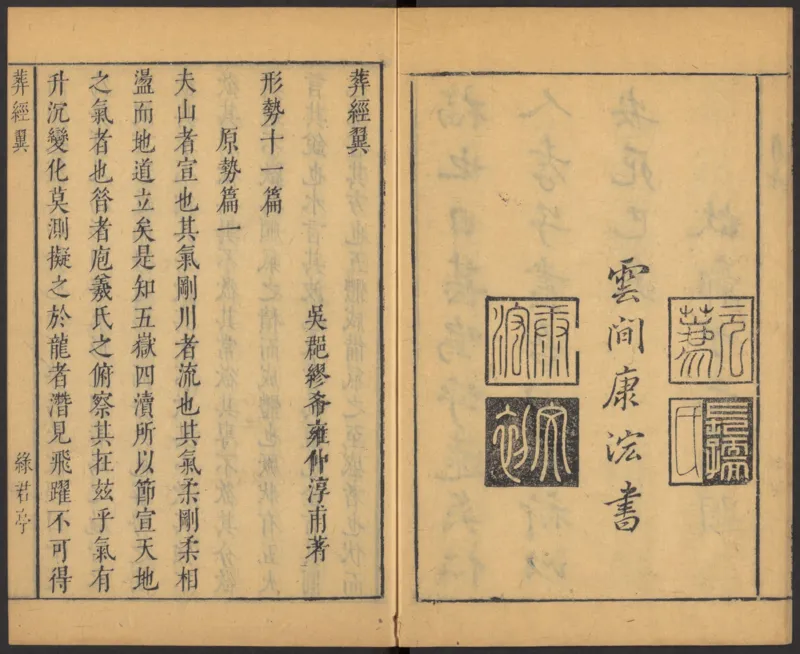 雲間康浤書
康浤
葬經翼
吳郡繆希雍仲淳甫著
形勢十一篇
原勢篇一
夫山者宣也其氣剛川者流也其氣柔剛柔相
盪而地道立矣是知五嶽四瀆所以節宣天地
之氣者也昔者庖羲氏之俯察其在茲乎氣有
升沉變化莫測擬之於龍者潛見飛躍不可得
葬經翼
綠君亭